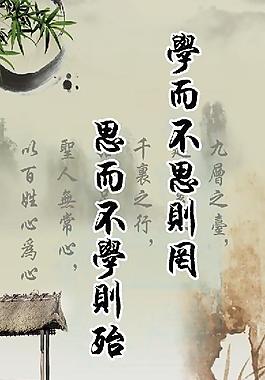 學而不思則罔
思而不學則殆
九層之臺,
千裏之行,
聖人無常心,
以百姓心爲心